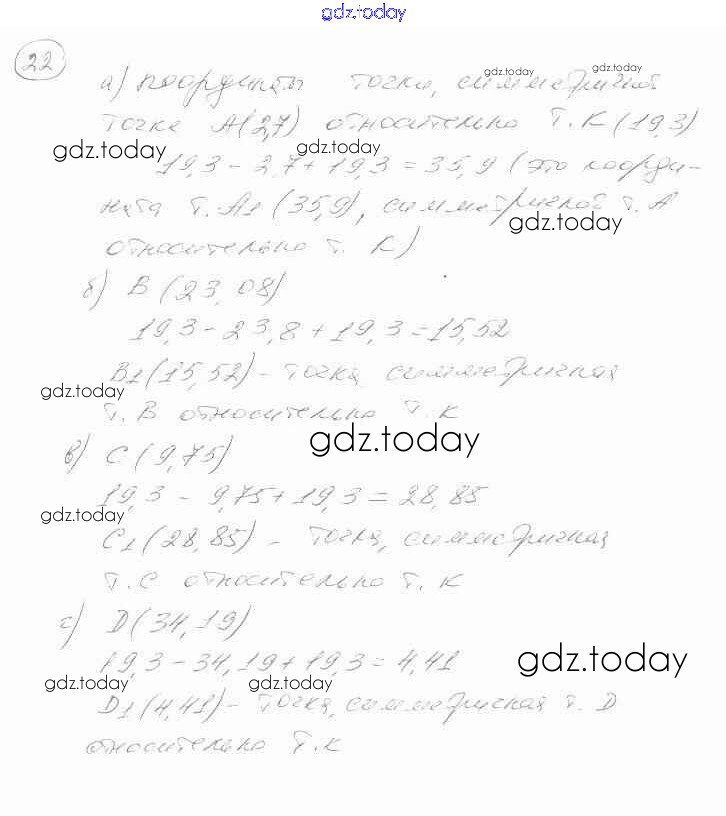 gdz.today
22
а) координаты точки, симметричной
gdz.today
gdz.today
точке А(2,7) относительно т. К (19,3)
gdz.today
gdz.today
19,3 - 2,7 + 19,3 = 35,9 (это коорди-
ната т. А1 (35,9), симметричной т. А
gdz.today
относительно т. К)
б) В (23,08)
19,3 - 23,8 + 19,3 = 15,52
В1 (15,52) - точка, симметричная
gdz.today
т. В относительно т. К
gdz.today
в) С (9,75)
19,3 - 9,75 + 19,3 = 28,85
gdz.today
С1 (28,85) - точка, симметричная
т. С относительно т. К
г) D (34,19)
19,3 - 34,19 + 19,3 = 4,41
gdz.today
gdz.today
gdz.today
D1 (4,41) - точка, симметричная т. D
относительно т. К